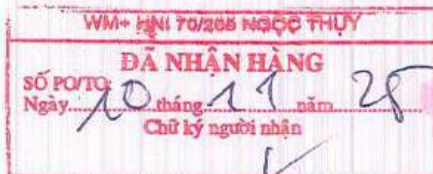 WM+ HNI 70/205 NGỌC THỤY
ĐÃ NHẬN HÀNG
SỐ PO/TO:
Ngày 10 tháng 11 năm 25
Chữ ký người nhận